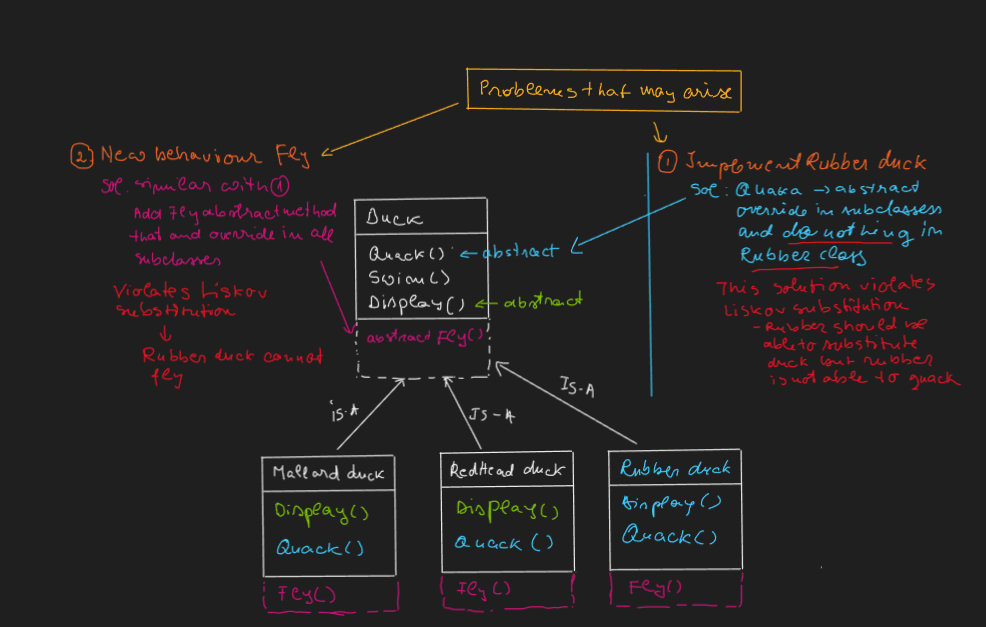 Problems that may arise
② New behaviour Fly
Sol. similar with ①
Add Fly abstract method
that and override in all
subclasses
Violates Liskov
substitution
↓
Rubber duck cannot
fly
① Implement Rubber duck
Sol: Quaka → abstract
override in subclassess
and do nothing in
Rubber class
This solution violates
Liskov substitution
- Rubber should be
able to substitute
duck but rubber
is not able to quack
Duck
Quack() ← abstract
Swim()
Display() ← abstract
abstract Fly()
is-A
IS-A
IS-A
Mallard duck
Display()
Quack()
Fly()
RedHead duck
Display()
Quack()
Fly()
Rubber duck
Display()
Quack()
Fly()